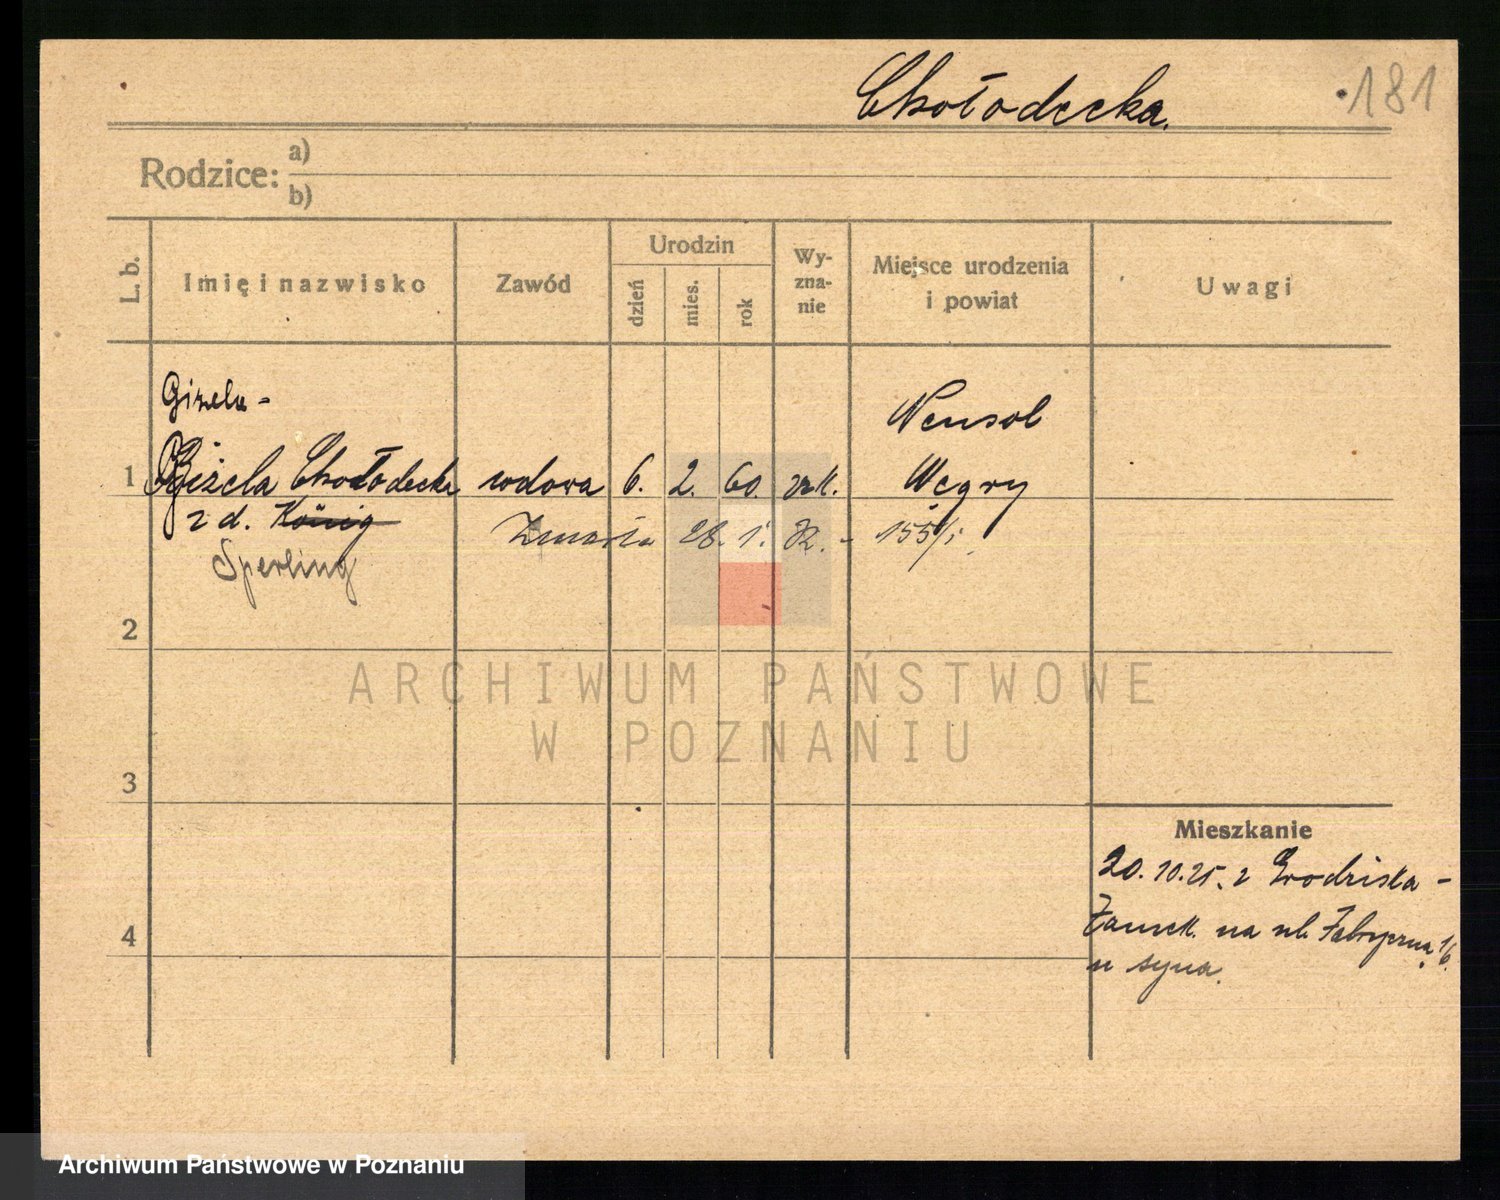 Chołodecka.
181
Rodzice: a)
b)
L. b.
Imię i nazwisko
Zawód
Urodzin
dzień
mies.
rok
Wy-
zna-
nie
Miejsce urodzenia
i powiat
Uwagi
Gizela -
Neusol
1 Giżela Chołodecka wdowa 6. 2. 60. rzk. Węgry
z d. König
Zmarła 28. 1. 32. - 155/i.
Sperling
2
3
4
ARCHIWUM PAŃSTWOWE
W POZNANIU
Mieszkanie
20.10.25. z Grodziska -
na ul. Fabryczną 16
u syna.
Archiwum Państwowe w Poznaniu